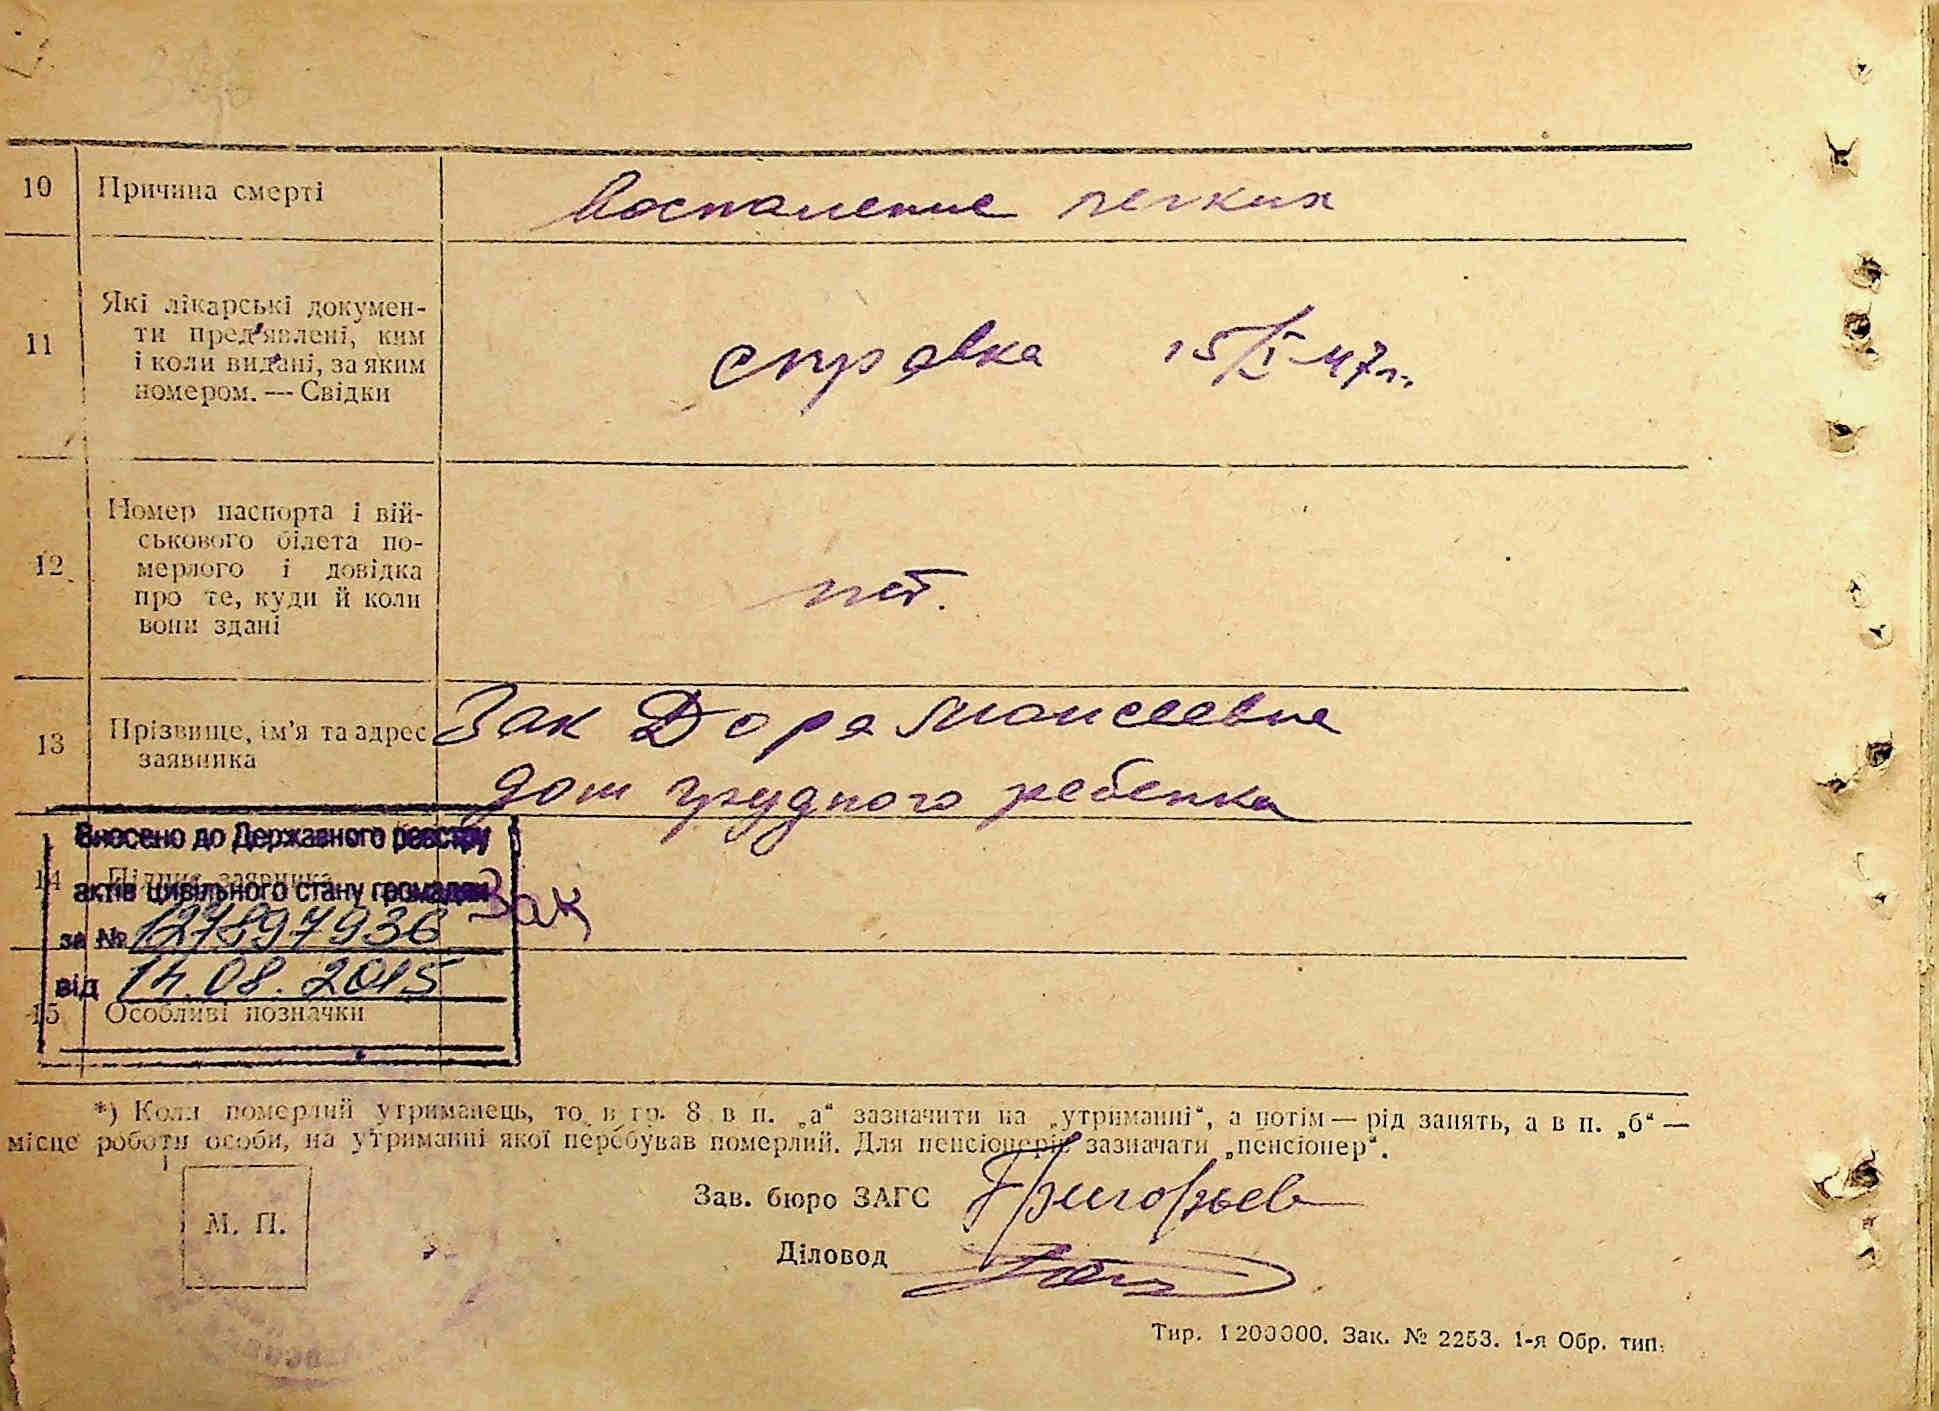 10 Причина смерті Воспаление легких
11 Які лікарські докумен-
ти пред'явлені, ким
і коли видані, за яким
номером. — Свідки
справка 15/I-47г.
12 Номер паспорта і вій-
ськового білета по-
мерлого і довідка
про те, куди й коли
вони здані
нет.
13 Прізвище, ім'я та адрес
заявника
Зак Дора Моисеевна
дом грудного ребенка
Внесено до Державного реєстру
14 Підпис заявника
актів цивільного стану громадян
Зак
за № 127897936
від 14.08.2015
15 Особливі позначки
*) Коли померлий утриманець, то в гр. 8 в п. „а“ зазначити на „утриманні“, а потім — рід занять, а в п. „б“ —
місце роботи особи, на утриманні якої перебував померлий. Для пенсіонерів зазначати „пенсіонер“.
Зав. бюро ЗАГС Григорьев
М. П.
Діловод
Тир. 1200000. Зак. № 2253. 1-я Обр. тип.